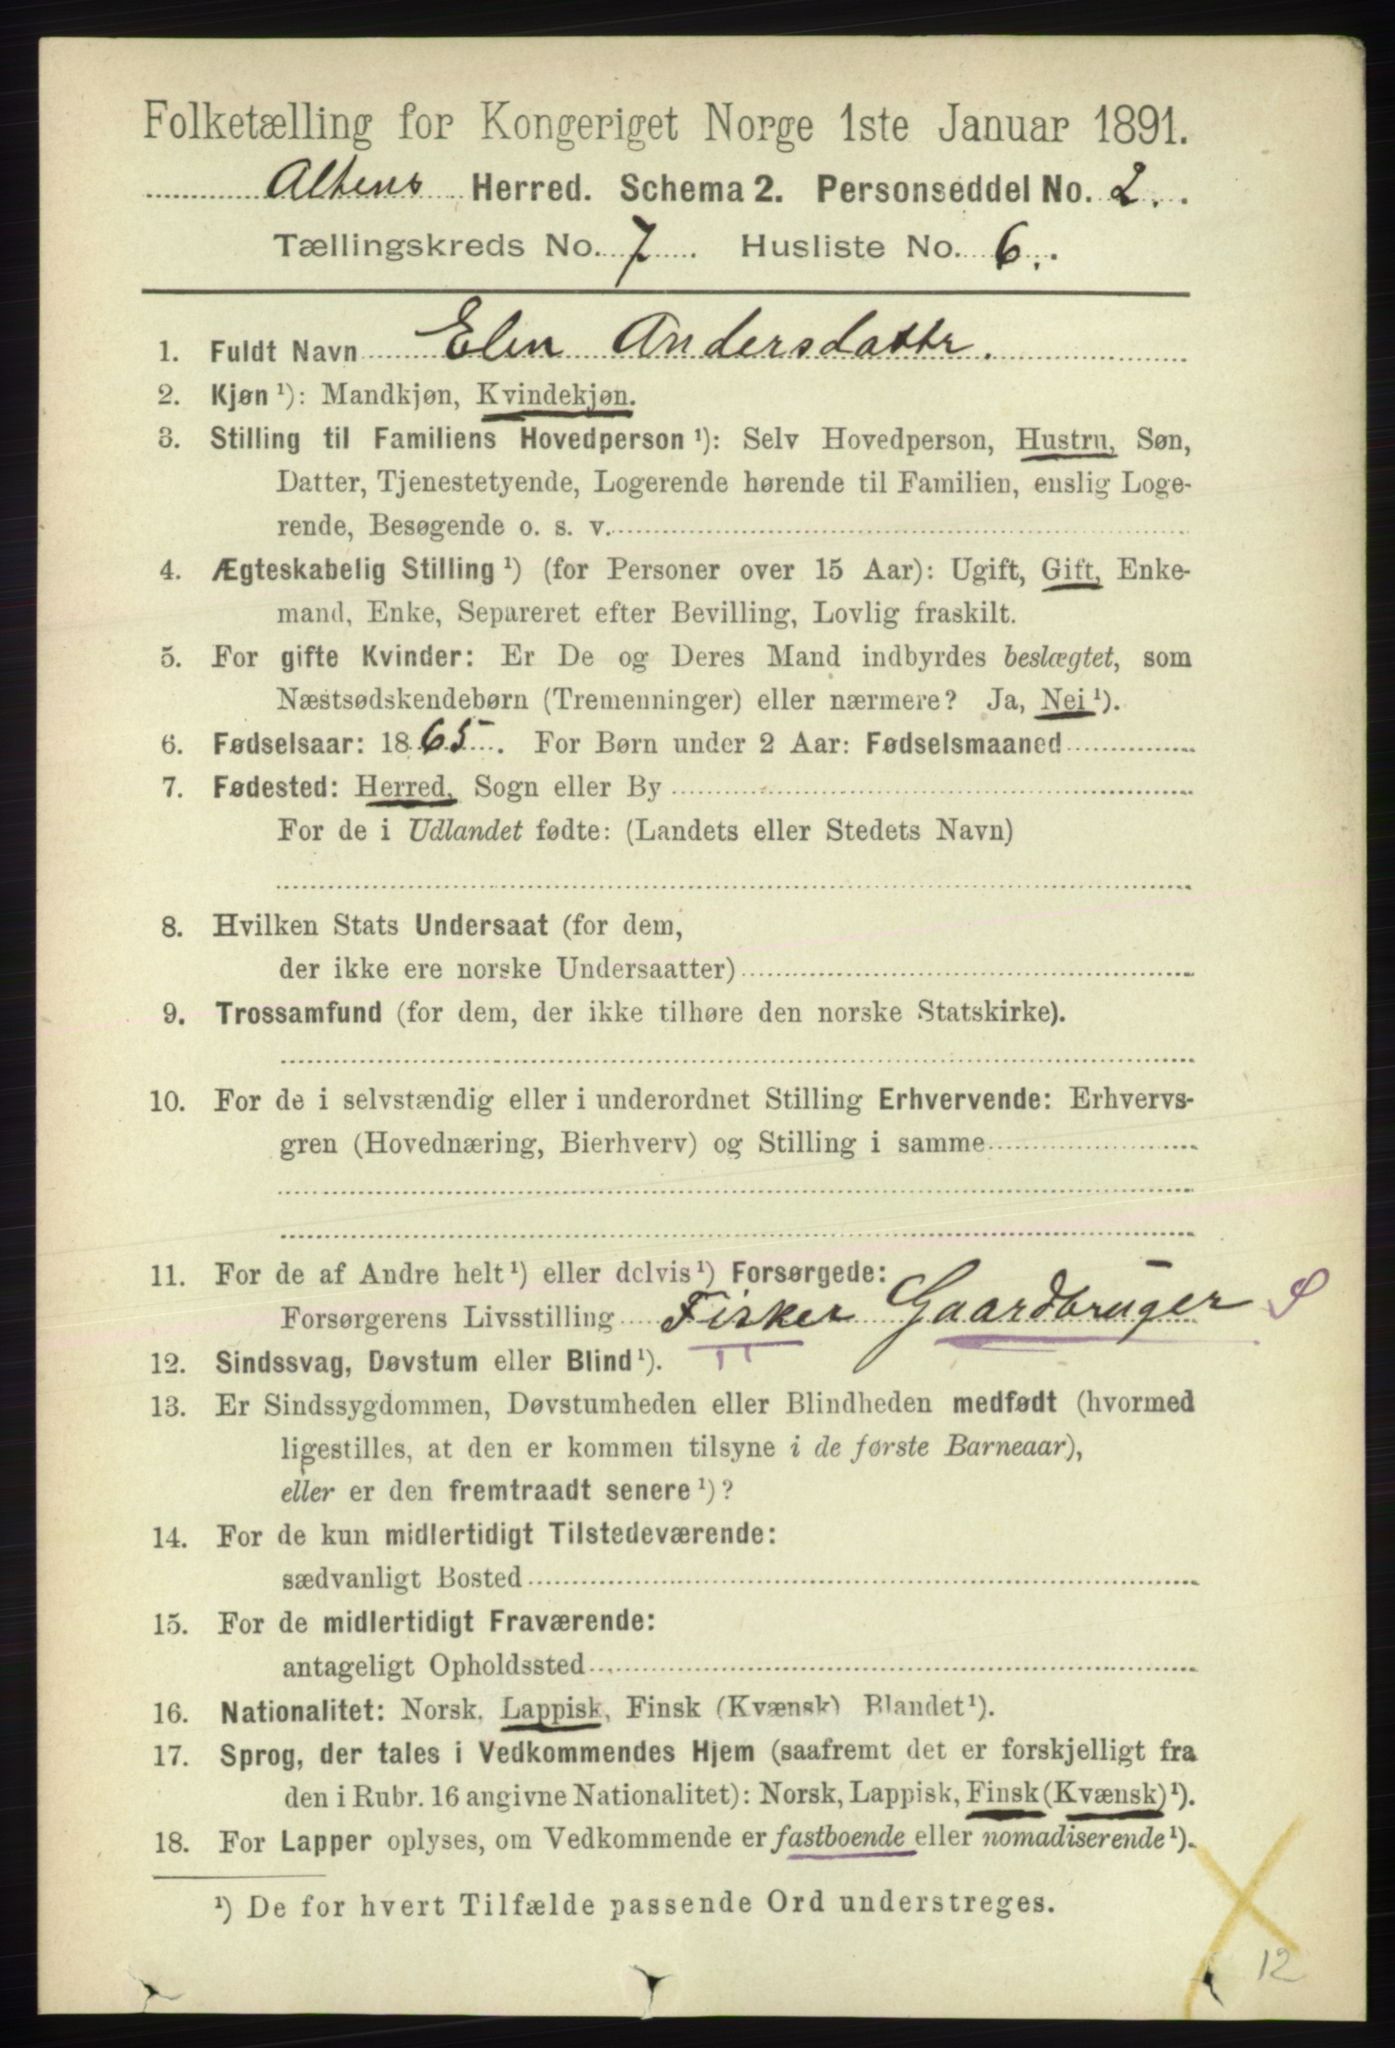 Folketælling for Kongeriget Norge 1ste Januar 1891.
Altens Herred. Schema 2. Personseddel No. 2.
Tællingskreds No. 7. Husliste No. 6.
1. Fuldt Navn Elen Andersdattr.
2. Kjøn ¹): Mandkjøn, Kvindekjøn.
3. Stilling til Familiens Hovedperson ¹): Selv Hovedperson, Hustru, Søn,
Datter, Tjenestetyende, Logerende hørende til Familien, enslig Loge-
rende, Besøgende o. s. v.
4. Ægteskabelig Stilling ¹) (for Personer over 15 Aar): Ugift, Gift, Enke-
mand, Enke, Separeret efter Bevilling, Lovlig fraskilt.
5. For gifte Kvinder: Er De og Deres Mand indbyrdes beslægtet, som
Næstsødskendebørn (Tremenninger) eller nærmere? Ja, Nei ¹).
6. Fødselsaar: 1865. For Børn under 2 Aar: Fødselsmaaned
7. Fødested: Herred, Sogn eller By
For de i Udlandet fødte: (Landets eller Stedets Navn)
8. Hvilken Stats Undersaat (for dem,
der ikke ere norske Undersaatter)
9. Trossamfund (for dem, der ikke tilhøre den norske Statskirke).
10. For de i selvstændig eller i underordnet Stilling Erhvervende: Erhvervs-
gren (Hovednæring, Bierhverv) og Stilling i samme
11. For de af Andre helt ¹) eller delvis ¹) Forsørgede:
Forsørgerens Livsstilling Fisker Gaardbruger
12. Sindssvag, Døvstum eller Blind ¹).
13. Er Sindssygdommen, Døvstumheden eller Blindheden medfødt (hvormed
ligestilles, at den er kommen tilsyne i de første Barneaar),
eller er den fremtraadt senere ¹)?
14. For de kun midlertidigt Tilstedeværende:
sædvanligt Bosted
15. For de midlertidigt Fraværende:
antageligt Opholdssted
16. Nationalitet: Norsk, Lappisk, Finsk (Kvænsk) Blandet ¹).
17. Sprog, der tales i Vedkommendes Hjem (saafremt det er forskjelligt fra
den i Rubr. 16 angivne Nationalitet): Norsk, Lappisk, Finsk (Kvænsk) ¹).
18. For Lapper oplyses, om Vedkommende er fastboende eller nomadiserende ¹).
¹) De for hvert Tilfælde passende Ord understreges.
12